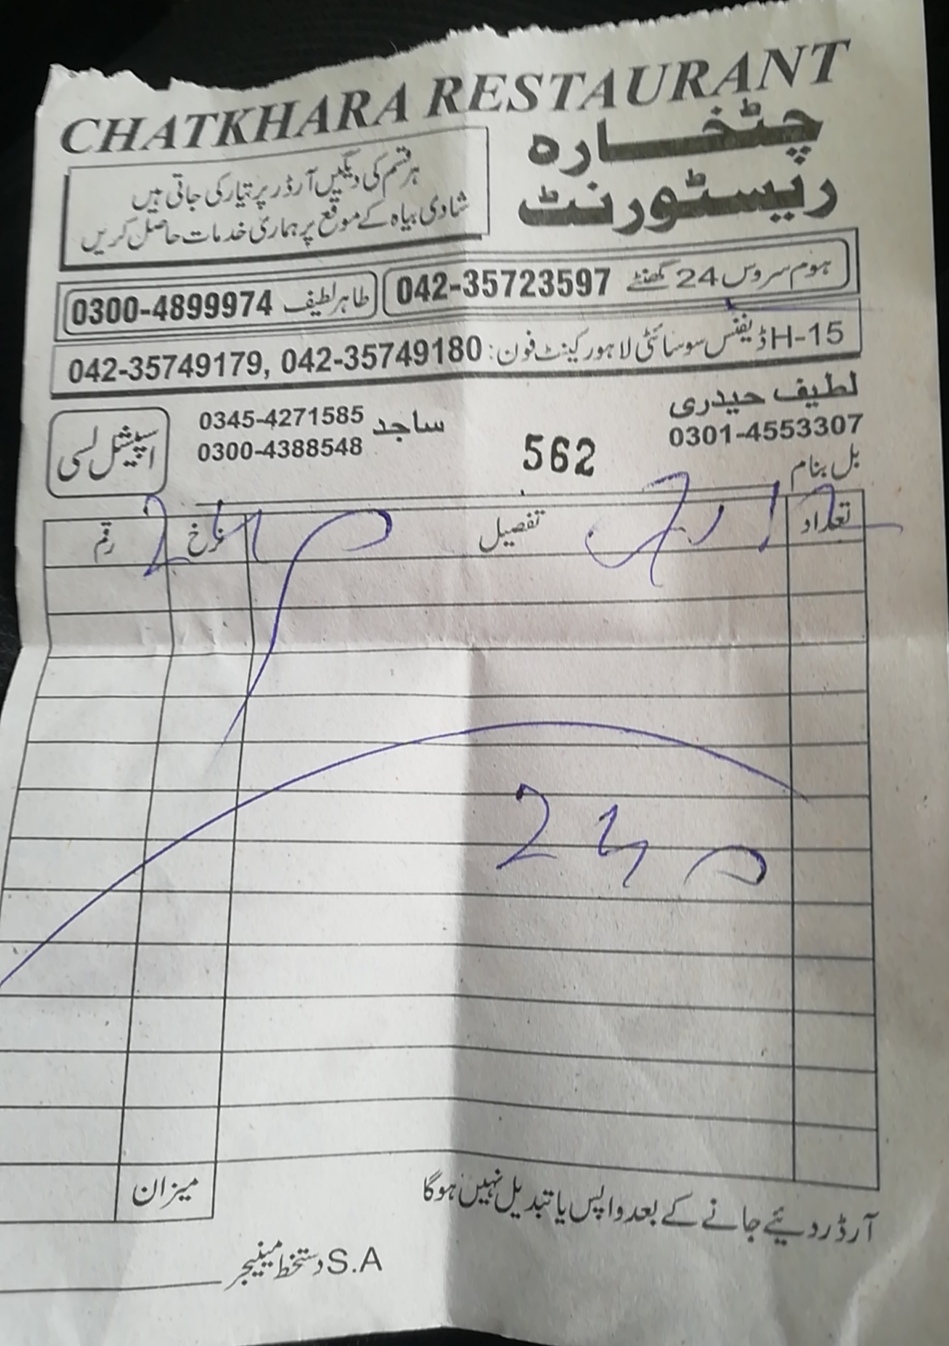 CHATKHARA RESTAURANT
چٹخارہ
ریسٹورنٹ
ہر قسم کی دیگیں آرڈر پر تیار کی جاتی ہیں
شادی بیاہ کے موقع پر ہماری خدمات حاصل کریں
ہوم سروس 24 گھنٹے 042-35723597
طاہر لطیف 0300-4899974
15-H ڈیفنس سوسائٹی لاہور کینٹ فون: 042-35749179, 042-35749180
لطیف حیدری
0301-4553307
562
ساجد 0345-4271585
0300-4388548
اسپیشل لسی
بل بنام
تعداد تفصیل نرخ رقم
240
میزان
آرڈر دئیے جانے کے بعد واپس یا تبدیل نہیں ہوگا
S.A دستخط مینیجر